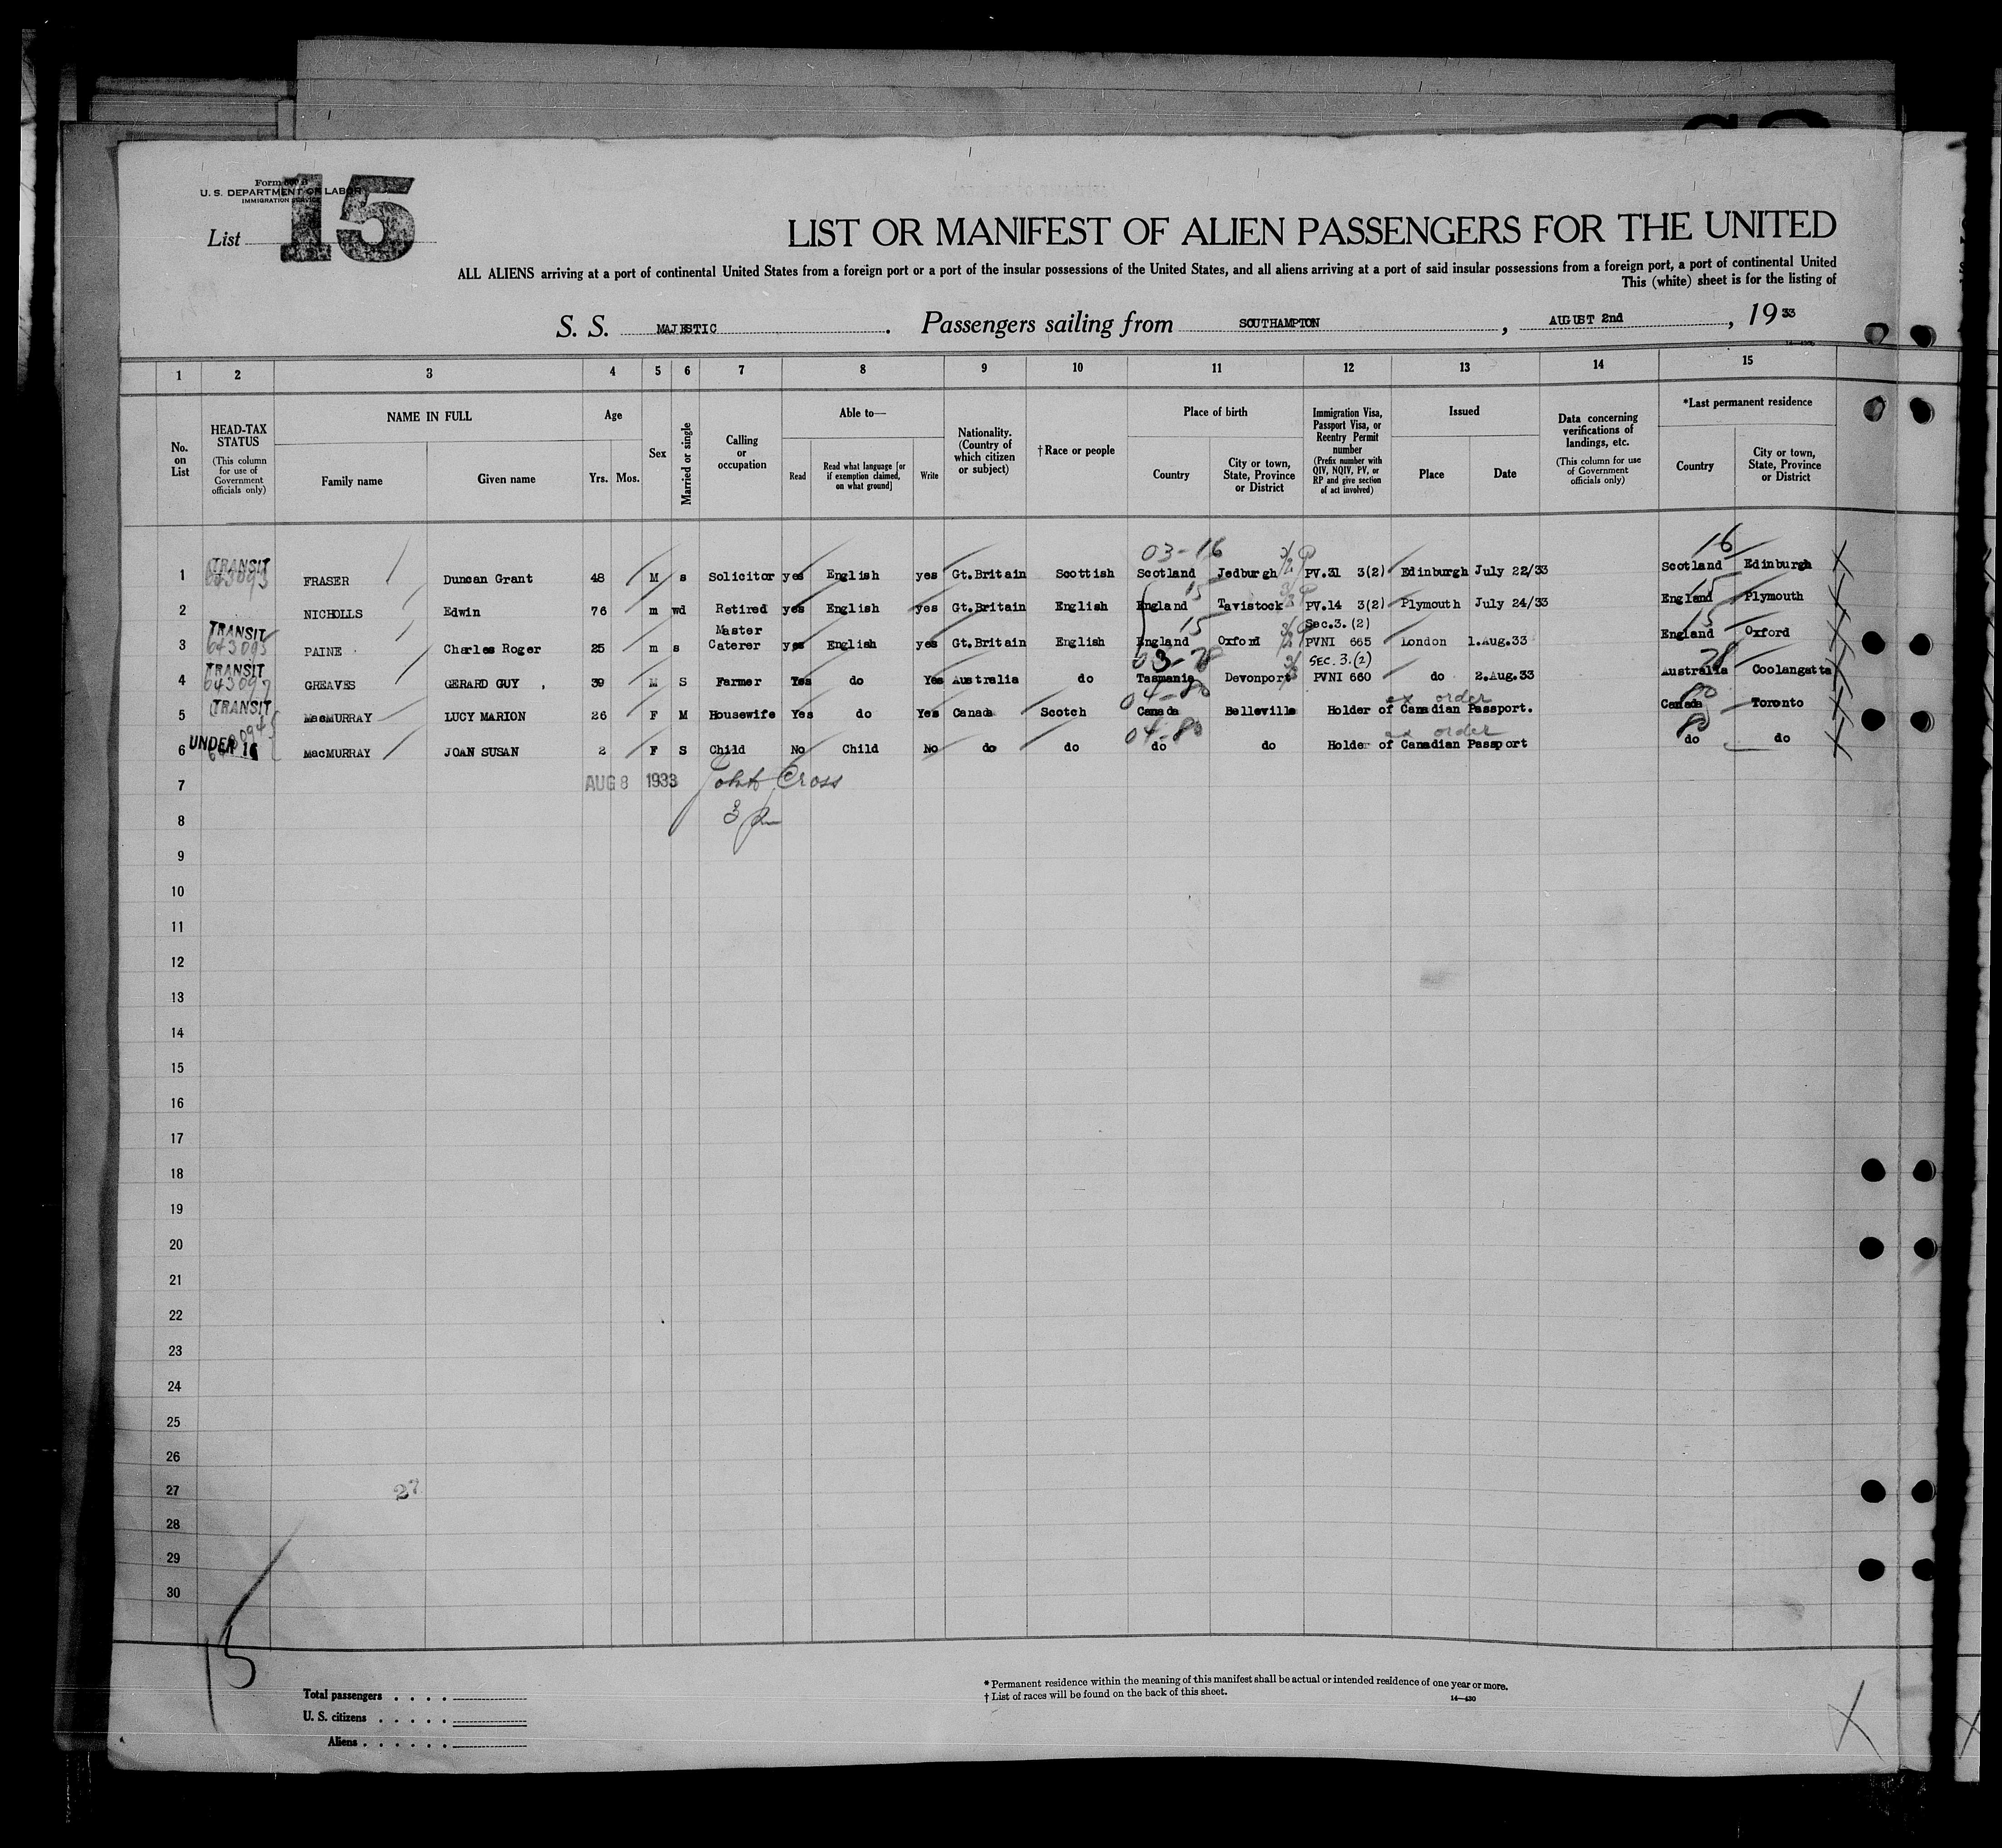 Form
U. S. DEPARTMENT OF LABOR
IMMIGRATION SERVICE
List 15
LIST OR MANIFEST OF ALIEN PASSENGERS FOR THE UNITED
ALL ALIENS arriving at a port of continental United States from a foreign port or a port of the insular possessions of the United States, and all aliens arriving at a port of said insular possessions from a foreign port, a port of continental United
This (white) sheet is for the listing of
S. S. MAJESTIC. Passengers sailing from SOUTHAMPTON, AUGUST 2nd, 1933
1 2 3 4 5 6 7 8 9 10 11 12 13 14 15
No. on List
HEAD-TAX STATUS (This column for use of Government officials only)
NAME IN FULL
Family name
Given name
Age
Yrs. Mos.
Sex
Married or single
Calling or occupation
Able to—
Read
Read what language [or if exemption claimed, on what ground]
Write
Nationality. (Country of which citizen or subject)
† Race or people
Place of birth
Country
City or town, State, Province or District
Immigration Visa, Passport Visa, or Reentry Permit number (Prefix number with QIV, NQIV, PV, or RP and give section of act involved)
Issued
Place
Date
Data concerning verifications of landings, etc. (This column for use of Government officials only)
*Last permanent residence
Country
City or town, State, Province or District
03-16 16
1 TRANSIT 643093 FRASER Duncan Grant 48 M s Solicitor yes English yes Gt.Britain Scottish Scotland Jedburgh PV.31 3(2) Edinburgh July 22/33 Scotland Edinburgh
15 15
2 NICHOLLS Edwin 76 m wd Retired yes English yes Gt.Britain English England Tavistock PV.14 3(2) Plymouth July 24/33 England Plymouth
Master 15 Sec.3.(2) 15
3 TRANSIT 643095 PAINE Charles Roger 25 m s Caterer yes English yes Gt.Britain English England Oxford PVNI 665 London 1.Aug.33 England Oxford
03-78 SEC. 3.(2) 78
4 TRANSIT 643097 GREAVES GERARD GUY, 39 M S Farmer Yes do Yes Australia do Tasmania Devonport PVNI 660 do 2.Aug.33 Australia Coolangatta
04-80 ex order 80
5 TRANSIT MacMURRAY LUCY MARION 26 F M Housewife Yes do Yes Canada Scotch Canada Belleville Holder of Canadian Passport. Canada Toronto
04-80 order 80
6 UNDER 16 MacMURRAY JOAN SUSAN 2 F S Child No Child No do do do do Holder of Canadian Passport do do
7 AUG 8 1933 Cross
8
9
10
11
12
13
14
15
16
17
18
19
20
21
22
23
24
25
26
27 27
28
29
30
15
Total passengers . . . .
U. S. citizens . . . . .
Aliens . . . . . .
* Permanent residence within the meaning of this manifest shall be actual or intended residence of one year or more.
† List of races will be found on the back of this sheet.
14—430